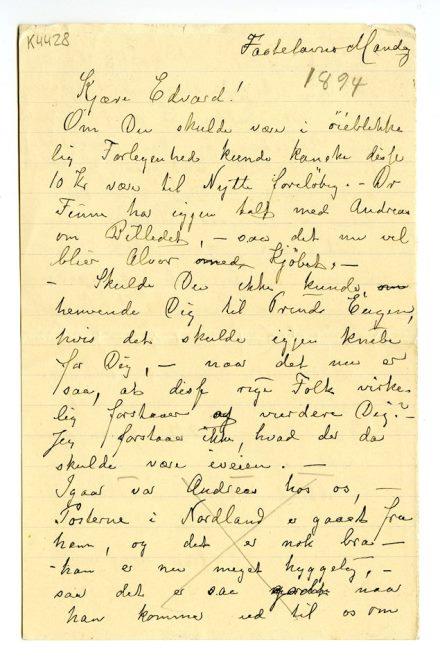 K4428
Fastelavns Mandag
1894
Kjære Edvard!
Om Du skulde være i øieblikke
lig Forlegenhed kunde kanske disse
10 Kr være til Nytte foreløbig. – Dr
Finne har iggen talt med Andreas
om Billedet, – saa det nu vel
blier Alvor med Kjøbet, –
– Skulde Du ikke kunde
henvende Dig til Prinds Eugen,
hvis det skulde iggen knibe
for Dig, – naar det nu er
saa, at disse rige Folk virke-
lig forstaaer og vurdere Dig? –
Jeg forstaaer ikke, hvad der da
skulde være iveien. –
Igaar var Andreas hos os, –
Posterne i Nordland er gaaet fra
ham, og det er nok bra –
han er nu meget hyggelig, –
saa det er saa naar
han komme ud til os om